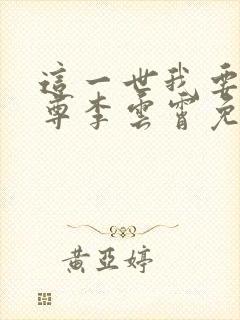 這一世我要
尊李雲霄免
黃亞婷